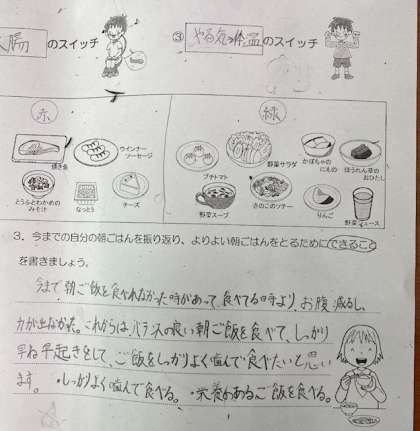 腸 のスイッチ
③ やる気の体温 のスイッチ
赤
緑
焼き魚
ウインナーソーセージ
とうふとわかめのみそ汁
なっとう
チーズ
プチトマト
野菜サラダ
かぼちゃのにもの
ほうれん草のおひたし
野菜スープ
きのこのソテー
りんご
野菜ジュース
3. 今までの自分の朝ごはんを振り返り、よりよい朝ごはんをとるために できること
を書きましょう。
今まで朝ご飯を食べれなかった時があって、食べてる時より、お腹減るし、
力が出なかった。これからはバランスの良い朝ご飯を食べて、しっかり
早ね早起きをして、ご飯をしっかりよく噛んで食べたいと思い
ます。・しっかりよく噛んで食べる。・栄養があるご飯を食べる。